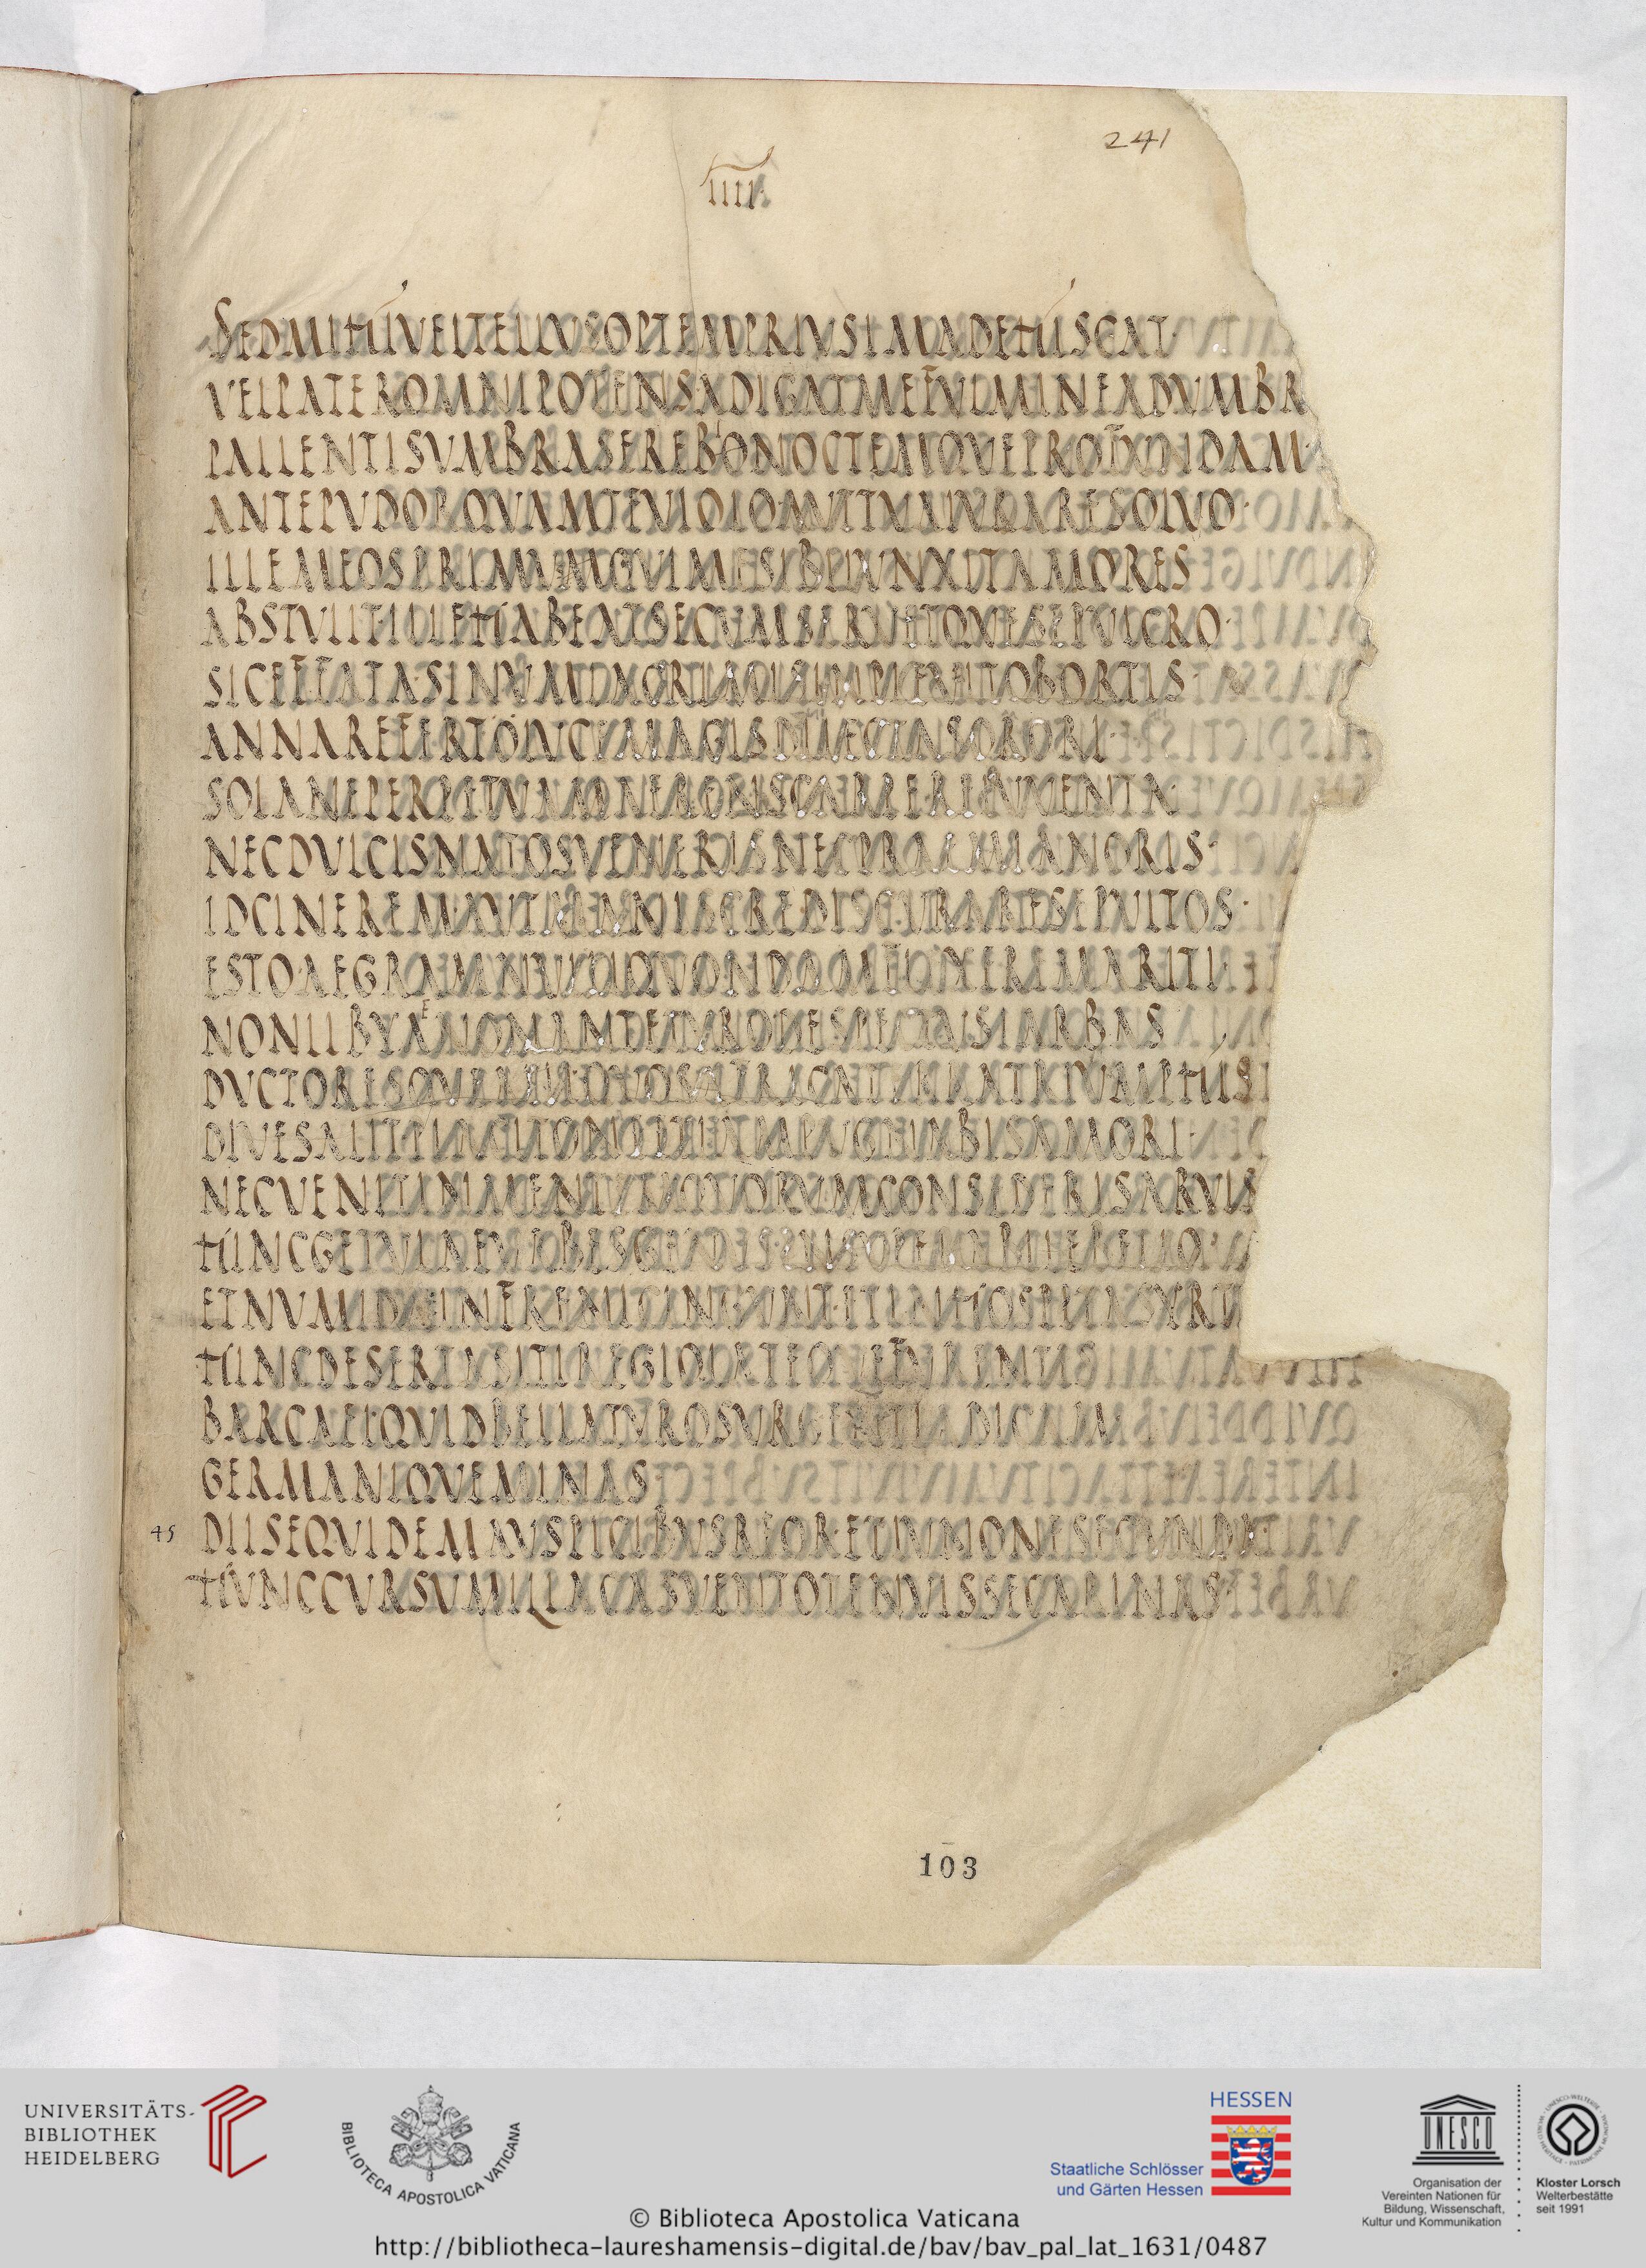 241
IIII
SEDMIHIVELTELLVSOPTEMPRIVSIMADEHISCAT
VELPATEROMNIPOTENSADIGATMEFVLMINEADVMBR
PALLENTISVMBRASEREBONOCTEMQVEPROFVNDAM·
ANTEPVDORQVAMTEVIOLOAVTTVAIVRARESOLVO·
ILLEMEOSPRIMVMQVIMESIBIIVNXITAMORES
ABSTVLIT·ILLEHABEATSECVMSERVETQVESEPVLCRO·
SICEFFATASINVMLACRIMISIMPLEVITOBORTIS·
ANNAREFERTOLVCEMAGISDILECTASORORI·
SOLANEPERPETVAMAERENSCARPEREIVVENTA
NECDVLCISNATOSVENERISNECPRAEMIANORIS·
IDCINEREMAVTMANISCREDISCVRARESEPVLTOS·
ESTOAEGRAMNVLLIQVONDAMFLEXEREMARITI
NONLIBYAE
DVCTORESQVEALIIQVOSAFRICATERRATRIVMPHIS
DIVESALITPLACITONEETIAMPVGNABISAMORI·
NECVENITINMENTEMQVORVMCONSEDERISARVIS
HINCGETVLAEVRBESGENVSINSVPERABILEBELLO·
ETNVMIDAEINFRENICINGVNTETINHOSPITASYRTI
HINCDESERTASITIREGIO
BARCAEIQVIDBELLATYROSVRGENTIADICAM
GERMANIQVEMINAS
45 DIISEQVIDEMAVSPICIBVSREORETIVNONESECVNDA
HVNCCVRSVMILIACASVENTOTENVISSECARINAS·
103
UNIVERSITÄTS-
BIBLIOTHEK
HEIDELBERG
BIBLIOTECA APOSTOLICA VATICANA
HESSEN
Staatliche Schlösser
und Gärten Hessen
UNESCO
Organisation der
Vereinten Nationen für
Bildung, Wissenschaft,
Kultur und Kommunikation
Kloster Lorsch
Welterbestätte
seit 1991
© Biblioteca Apostolica Vaticana
http://bibliotheca-laureshamensis-digital.de/bav/bav_pal_lat_1631/0487